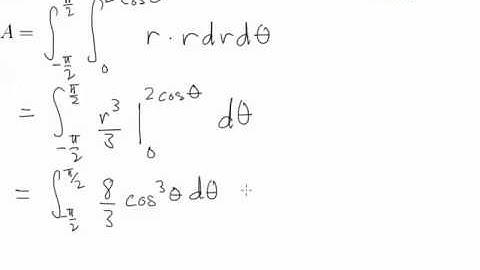 A = ∫_{-π/2}^{π/2} ∫_0^{2cosθ} r · r dr dθ
= ∫_{-π/2}^{π/2} r³/3 |_0^{2cosθ} dθ
= ∫_{-π/2}^{π/2} 8/3 cos³θ dθ